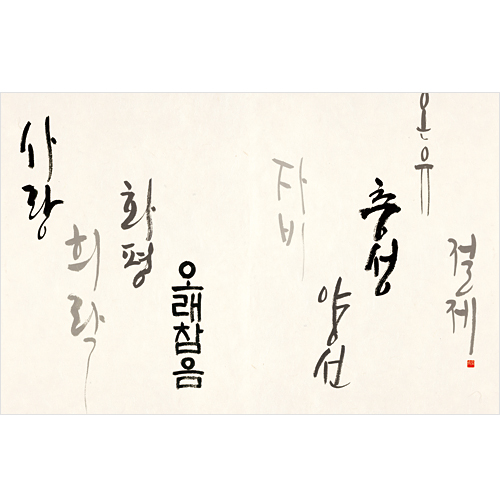 사랑
희락
화평
오래참음
자비
양선
충성
온유
절제